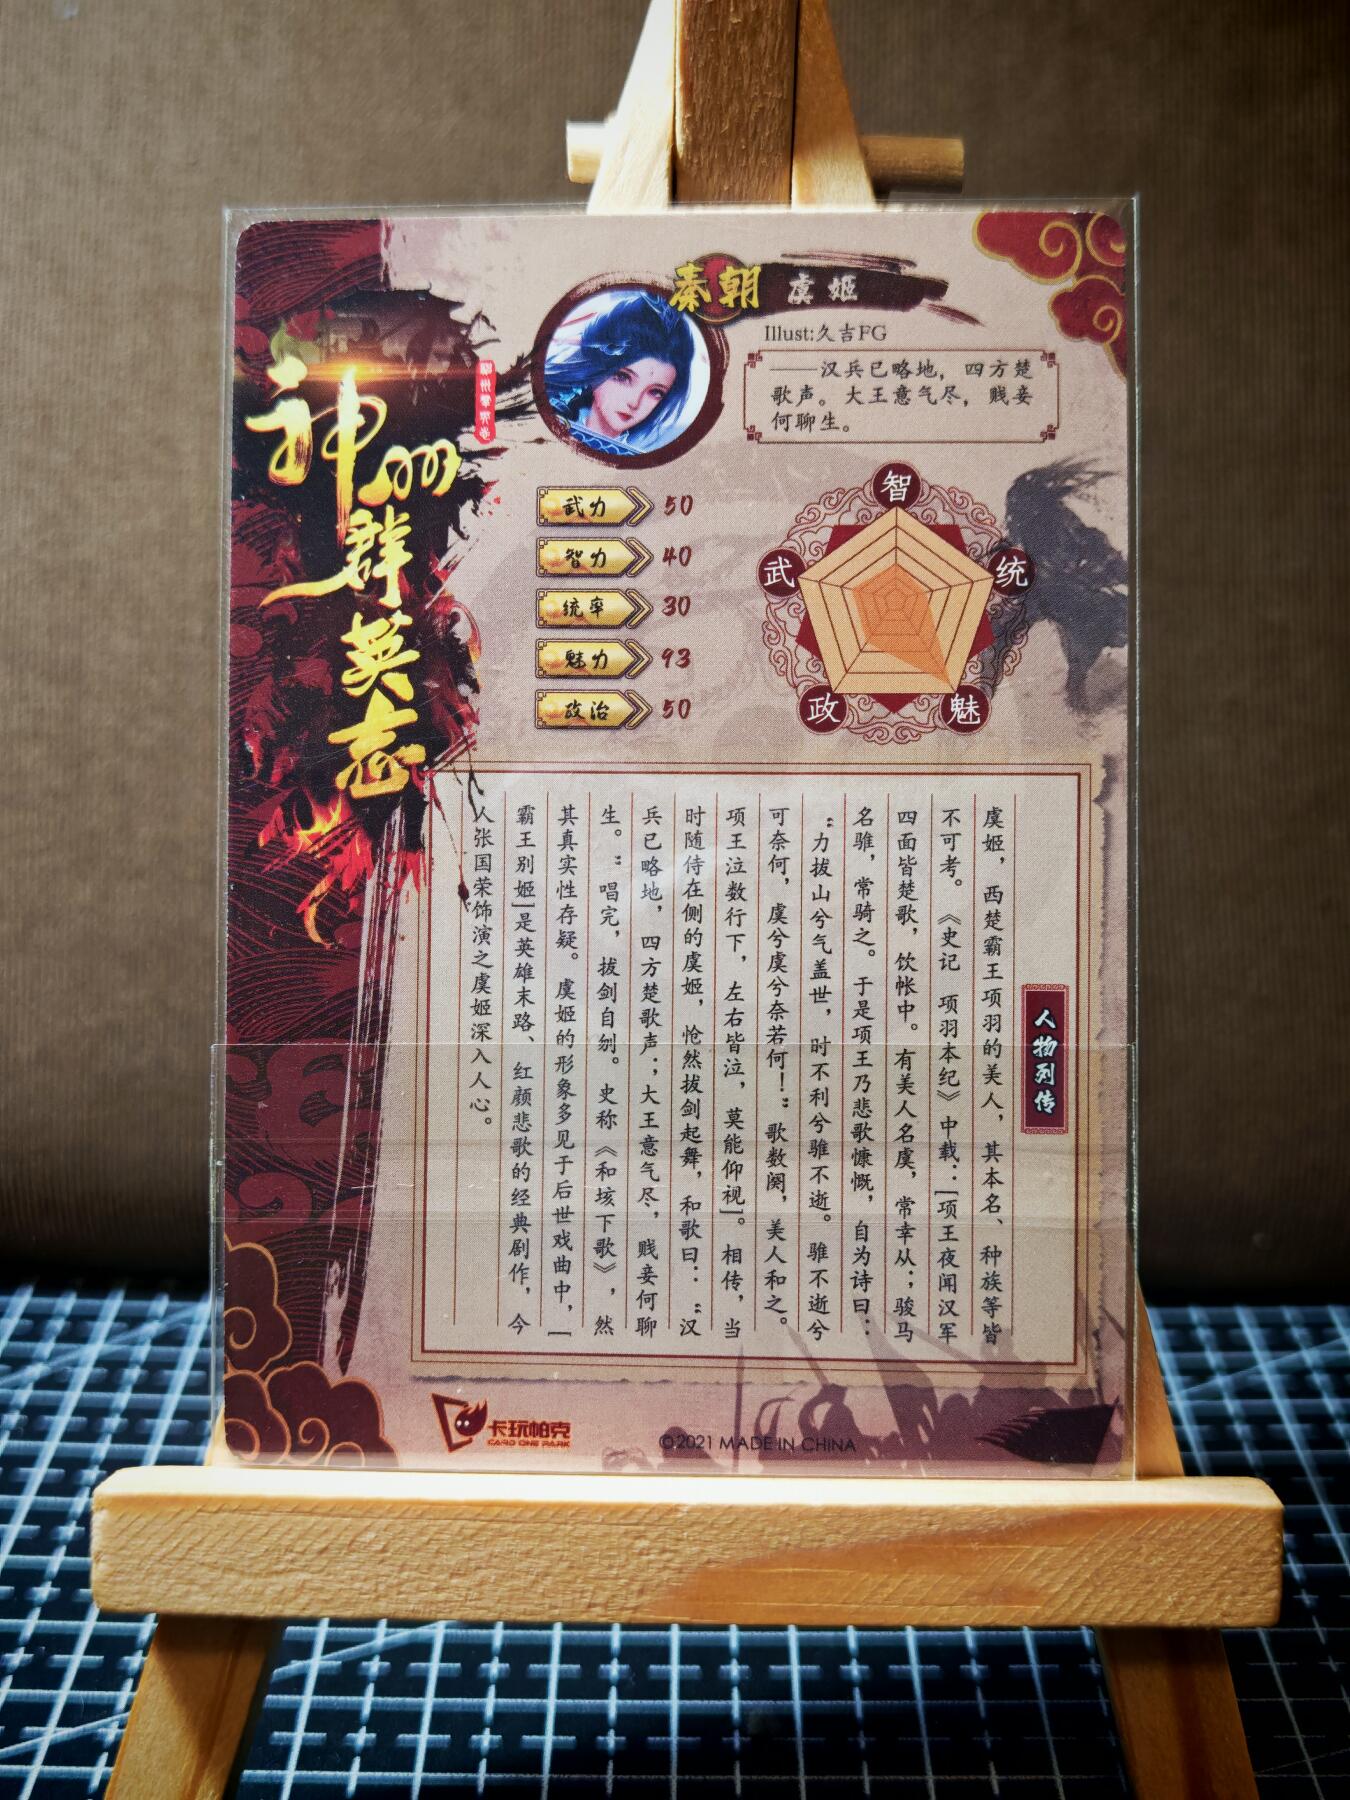 神州群英志
秦朝 虞姬
Illust:久吉FG
——汉兵已略地，四方楚
歌声。大王意气尽，贱妾
何聊生。
武力 50
智力 40
统率 30
魅力 93
政治 50
智
武
统
政
魅
人物列传
虞姬，西楚霸王项羽的美人，其本名、种族等皆
不可考。《史记 项羽本纪》中载：[项王夜闻汉军
四面皆楚歌，饮帐中。有美人名虞，常幸从；骏马
名骓，常骑之。于是项王乃悲歌慷慨，自为诗曰：
“力拔山兮气盖世，时不利兮骓不逝。骓不逝兮
可奈何，虞兮虞兮奈若何！”歌数阕，美人和之。
项王泣数行下，左右皆泣，莫能仰视]。相传，当
时随侍在侧的虞姬，怆然拔剑起舞，和歌曰：“汉
兵已略地，四方楚歌声；大王意气尽，贱妾何聊
生。”唱完，拔剑自刎。史称《和垓下歌》，然
其真实性存疑。虞姬的形象多见于后世戏曲中，[
霸王别姬]是英雄末路、红颜悲歌的经典剧作，今
人张国荣饰演之虞姬深入人心。
卡玩帕克
CARD ONE PARK
©2021 MADE IN CHINA